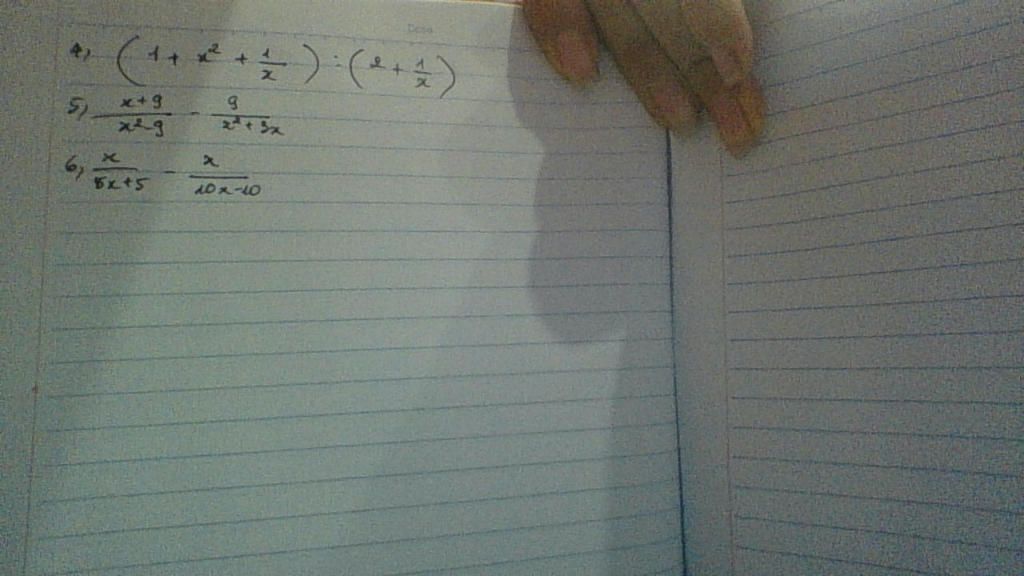 Date
4, (1 + x² + 1/x) : (2 + 1/x)
5, (x+9)/(x²-9) - 9/(x²+3x)
6, x/(5x+5) - x/(10x-10)